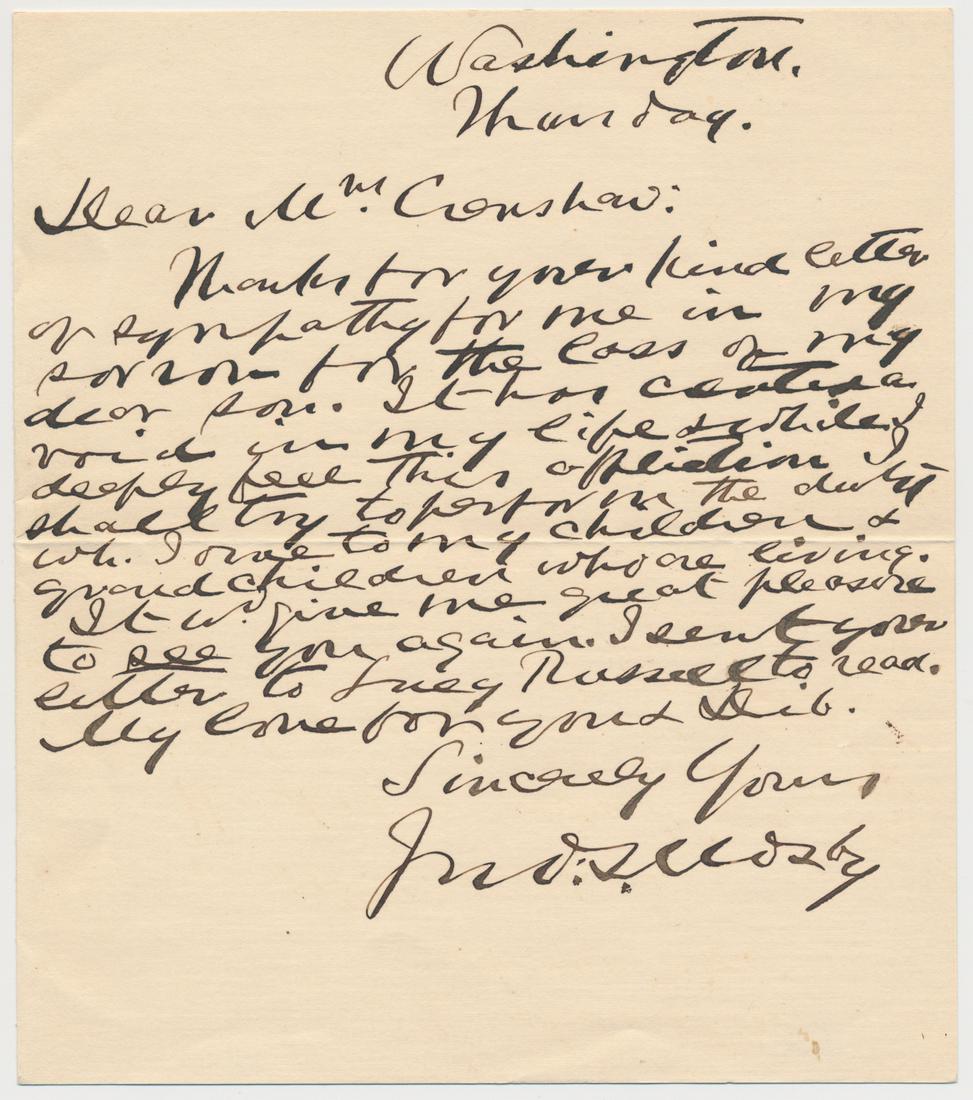 Washington.
Thursday.
Dear Mrs. Crenshaw:
Thanks for your kind letter
of sympathy for me in my
sorrow for the loss of my
dear son. It has left a
void in my life & while I
deeply feel this affliction I
shall try to perform the duty
wh. I owe to my children &
grandchildren who are living.
It wd. give me great pleasure
to see you again. I sent your
letter to Lucy Russell to read.
My love for you &
Sincerely Yours
Jno: S. Mosby